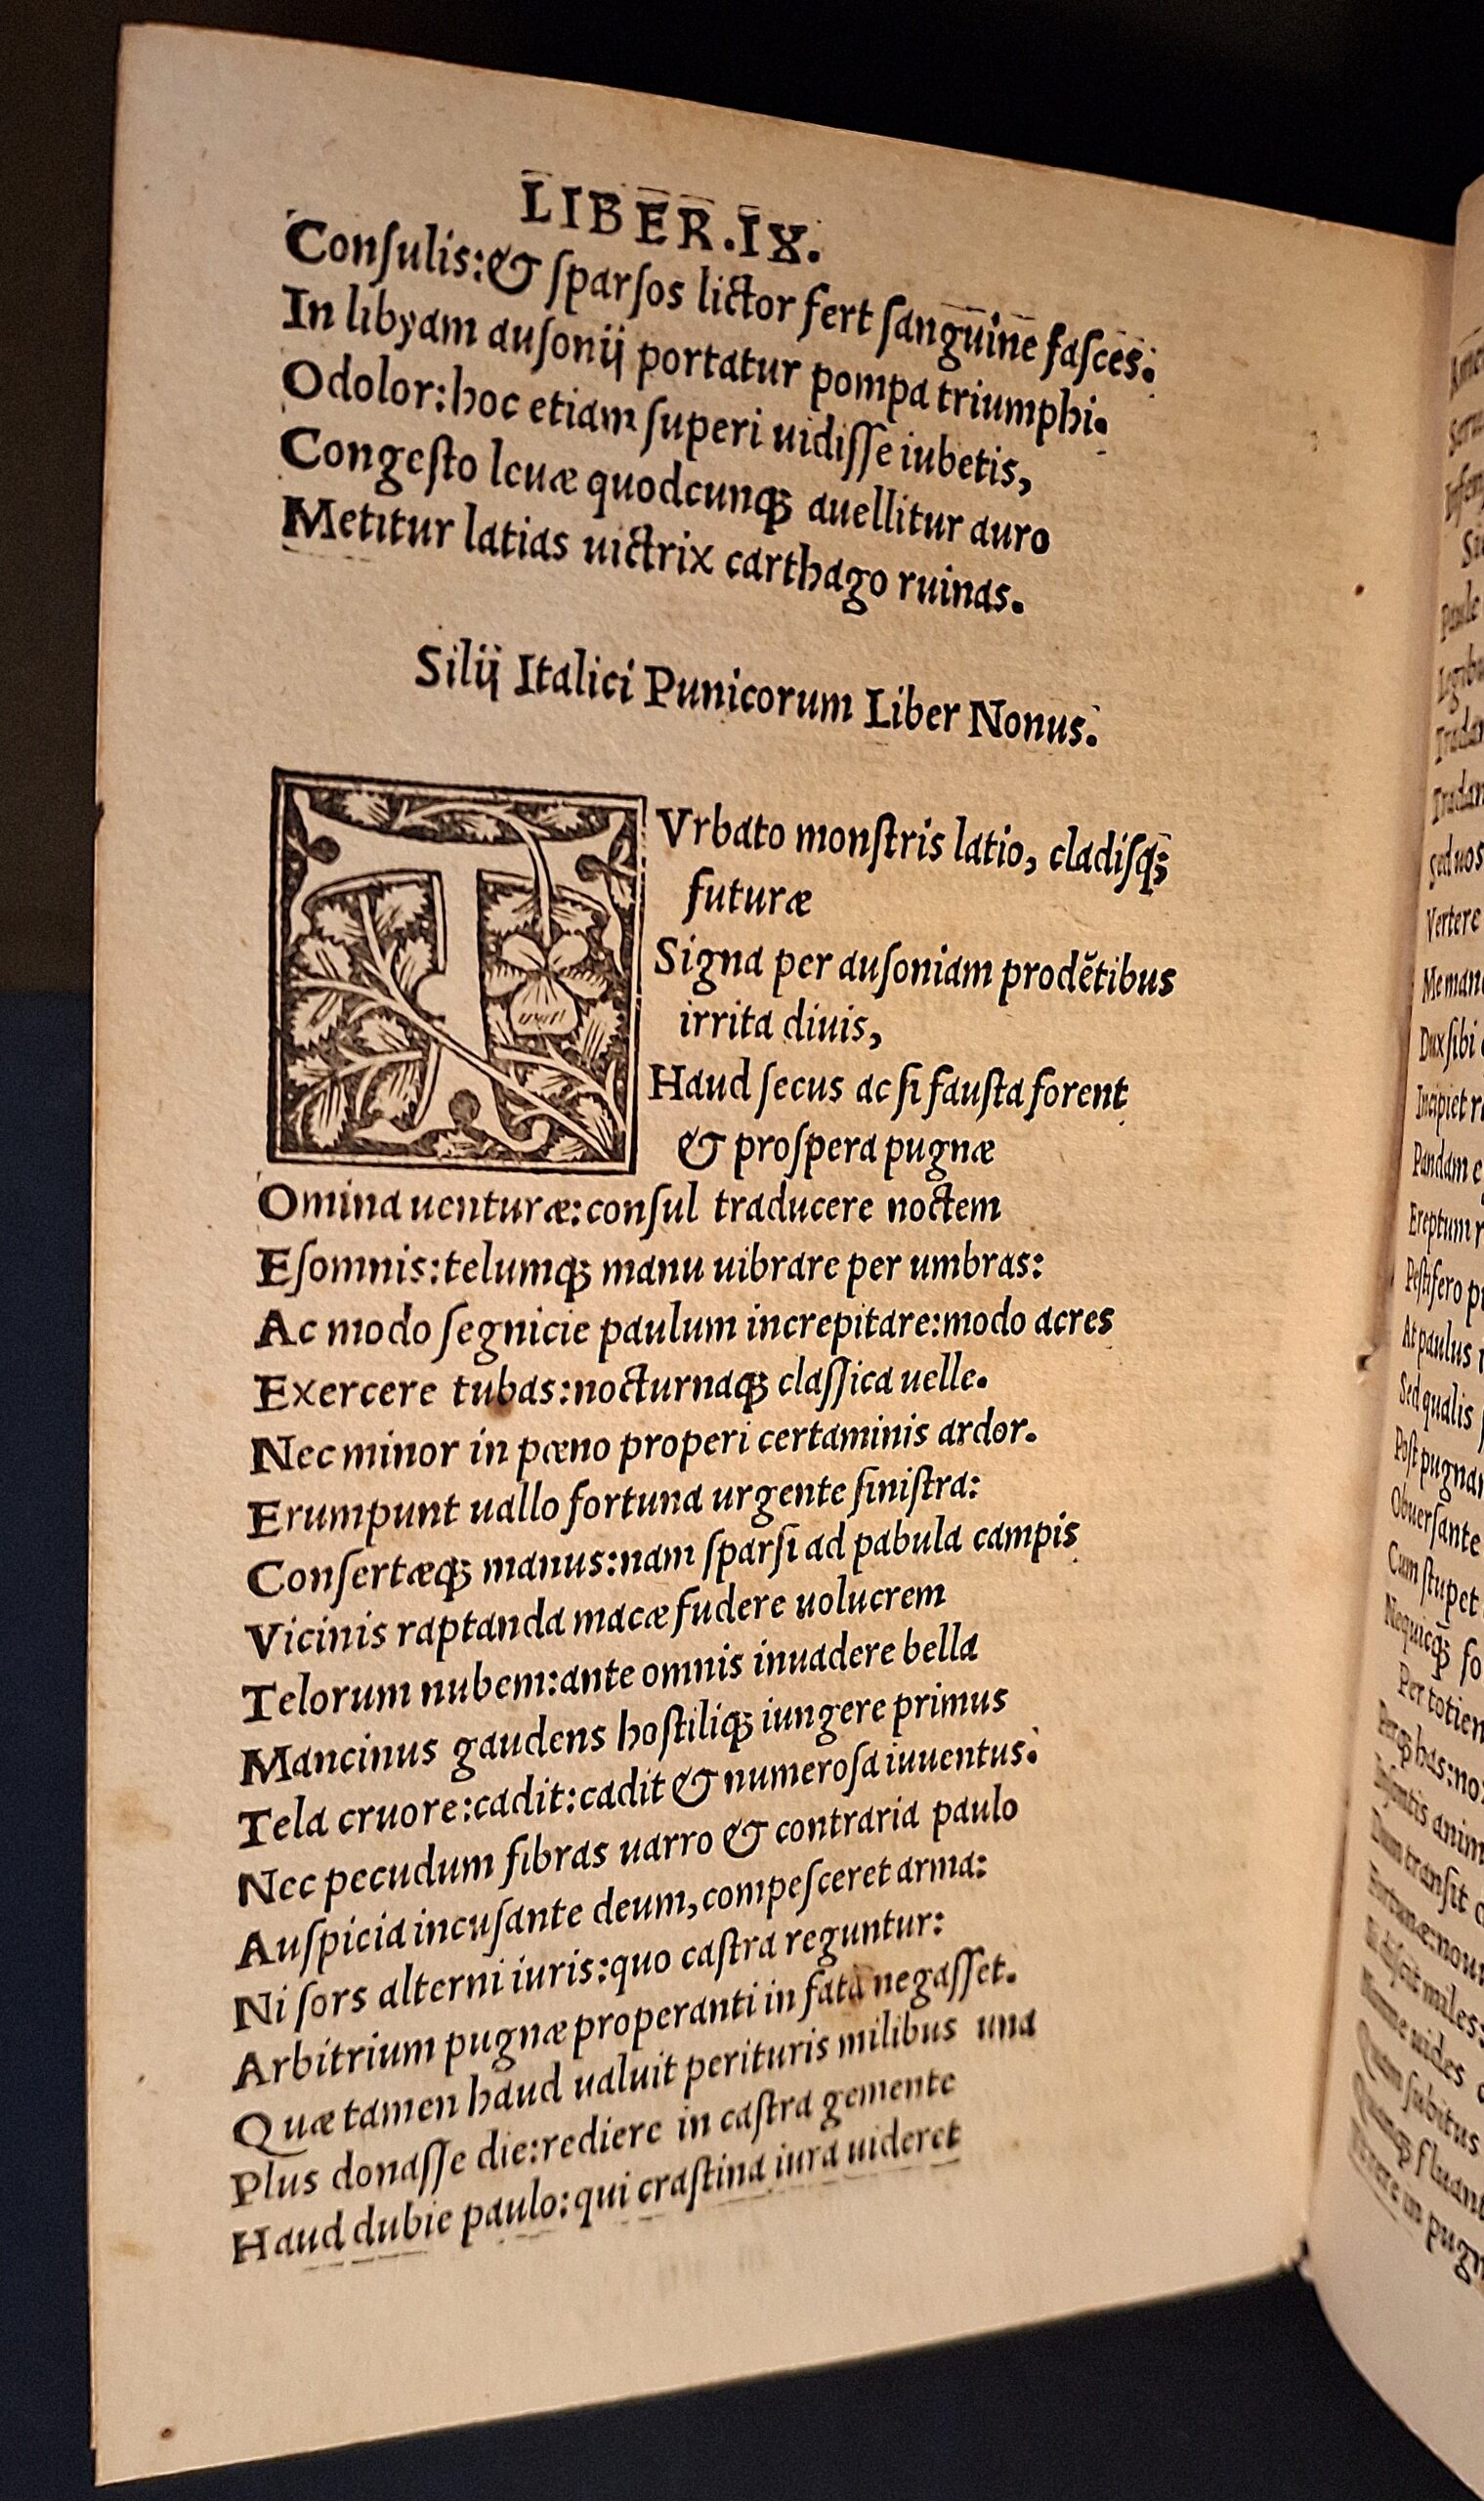 LIBER.IX.
Conſulis:& ſparſos lictor fert ſanguine faſces.
In libyam auſonij portatur pompa triumphi.
Odolor:hoc etiam ſuperi uidiſſe iubetis,
Congeſto leuæ quodcunqꝫ auellitur auro
Metitur latias uictrix carthago ruinas.
Silij Italici Punicorum Liber Nonus.
TVrbato monſtris latio, cladiſqꝫ
futuræ
Signa per auſoniam prodẽtibus
irrita diuis,
Haud ſecus ac ſi fauſta forent
& proſpera pugnæ
Omina uenturæ:conſul traducere noctem
Eſomnis:telumqꝫ manu uibrare per umbras:
Ac modo ſegnicie paulum increpitare:modo acres
Exercere tubas:nocturnaqꝫ claſſica uelle.
Nec minor in pœno properi certaminis ardor.
Erumpunt uallo fortuna urgente ſiniſtra:
Conſertæqꝫ manus:nam ſparſi ad pabula campis
Vicinis raptanda macæ fudere uolucrem
Telorum nubem:ante omnis inuadere bella
Mancinus gaudens hoſtiliqꝫ iungere primus
Tela cruore:cadit:cadit & numeroſa iuuentus.
Nec pecudum fibras uarro & contraria paulo
Auſpicia incuſante deum,compeſceret arma:
Ni ſors alterni iuris:quo caſtra reguntur:
Arbitrium pugnæ properanti in fata negaſſet.
Quæ tamen haud ualuit perituris milibus una
Plus donaſſe die:rediere in caſtra gemente
Haud dubie paulo:qui craſtina iura uideret
Paule
Sed uos
Vertere
Dux ſibi
Incipiet
Pandam
Ereptum
Peſtifero
At paulus
Sed qualis
Poſt pugnam
Obuerſante
Cum ſtupet
Per totien